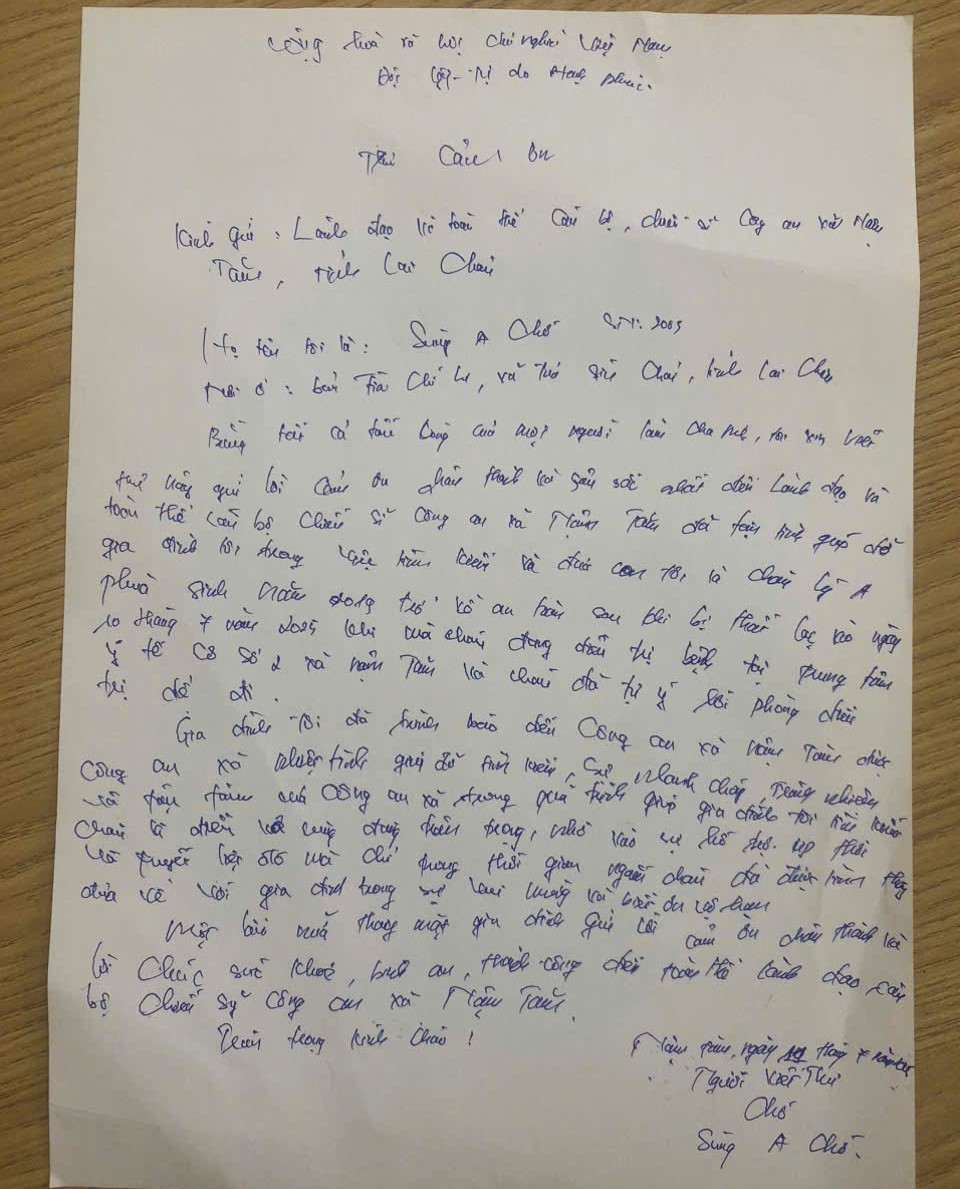 Cộng hoà xã hội chủ nghĩa Việt Nam
Độc lập - Tự do Hạnh phúc.
Thư Cảm ơn
Kính gửi : Lãnh đạo và toàn thể Cán bộ, chiến sĩ Công an xã Nậm
Tăm, tỉnh Lai Châu
Họ tên tôi là : Sùng A Chố
Nơi ở : bản Chố, xã Sìn Chải, tỉnh Lai Châu
Bằng tất cả tấm lòng của một người làm cha mẹ, tôi xin viết
thư này gửi lời cảm ơn chân thành và sâu sắc nhất đến Lãnh đạo và
toàn thể cán bộ chiến sĩ Công an xã Nậm Tăm đã tận tình giúp đỡ
gia đình tôi trong việc tìm kiếm và đưa con tôi là cháu Lý A
Phuà sinh năm 2019 trở về an toàn sau khi bị thất lạc vào ngày
10 tháng 7 năm 2025 khi mà cháu đang điều trị bệnh tại trung tâm
y tế cơ sở 2 xã Nậm Tăm và cháu đã tự ý rời phòng điều
trị đi.
Gia đình tôi đã trình báo đến Công an xã Nậm Tăm được
Công an xã nhiệt tình giúp đỡ tìm kiếm, Sự nhanh chóng, trách nhiệm
và tận tâm của Công an xã trong quá trình giúp gia đình tôi tìm kiếm
cháu là điều vô cùng đáng trân trọng, nhờ vào sự hỗ trợ kịp thời
và quyết liệt đó mà chỉ trong thời gian ngắn cháu đã được tìm thấy
đưa về với gia đình trong sự vui mừng và biết ơn vô hạn
Một lần nữa thay mặt gia đình gửi lời cảm ơn chân thành và
lời Chúc sức khoẻ, bình an, thành công đến toàn thể lãnh đạo, cán
bộ chiến sỹ công an xã Nậm Tăm.
Trân trọng kính chào !
Nậm Tăm, ngày tháng 7 năm
Người viết Thư
Chố
Sùng A Chố.